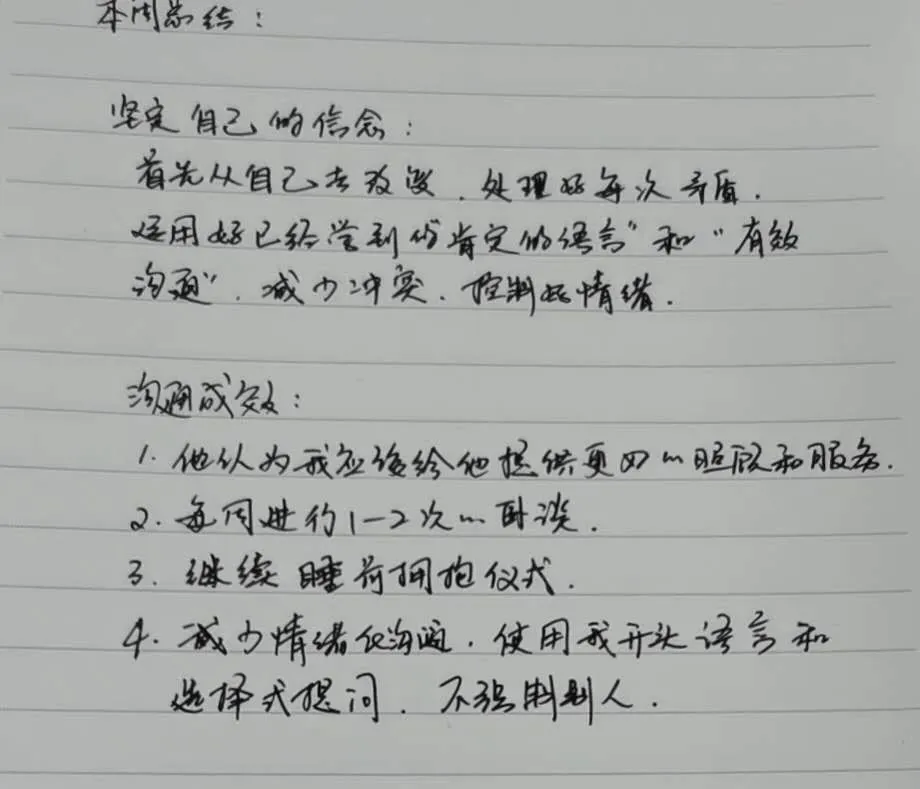 本周总结：
坚定自己的信念：
首先从自己去改变．处理好每次矛盾．
运用好已经学到的“肯定的语言”和“有效
沟通”．减少冲突．控制好情绪．
沟通成效：
1. 他认为我应该给他提供更好的照顾和服务．
2. 每周进行1-2次的时谈．
3. 继续睡前拥抱仪式．
4. 减少情绪化沟通．使用我开头语言和
选择式提问．不强制别人．